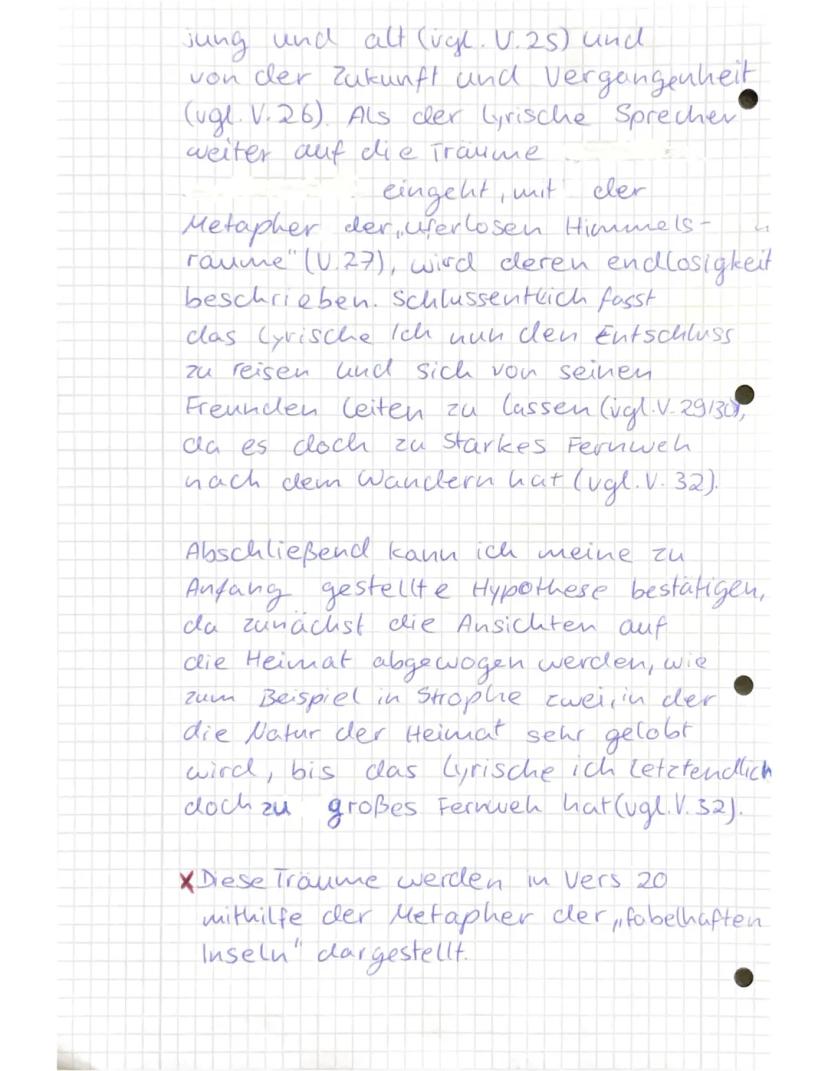 jung und alt (vgl. V. 25) und
von der Zukunft und Vergangenheit
(vgl. V. 26). Als der lyrische Sprecher
weiter auf die Träume
eingeht, mit der
Metapher der „uferlosen Himmels-
räume" (V. 27), wird deren endlosigkeit
beschrieben. Schlussentlich fasst
das lyrische Ich nun den Entschluss
zu reisen und sich von seinen
Freunden leiten zu lassen (vgl. V. 29/30),
da es doch zu starkes Fernweh
nach dem Wandern hat (vgl. V. 32).
Abschließend kann ich meine zu
Anfang gestellte Hypothese bestätigen,
da zunächst die Ansichten auf
die Heimat abgewogen werden, wie
zum Beispiel in Strophe zwei, in der
die Natur der Heimat sehr gelobt
wird, bis das lyrische ich letztendlich
doch zu großes Fernweh hat (vgl. V. 32).
x Diese Träume werden in Vers 20
mithilfe der Metapher der „fabelhaften
Inseln" dargestellt.